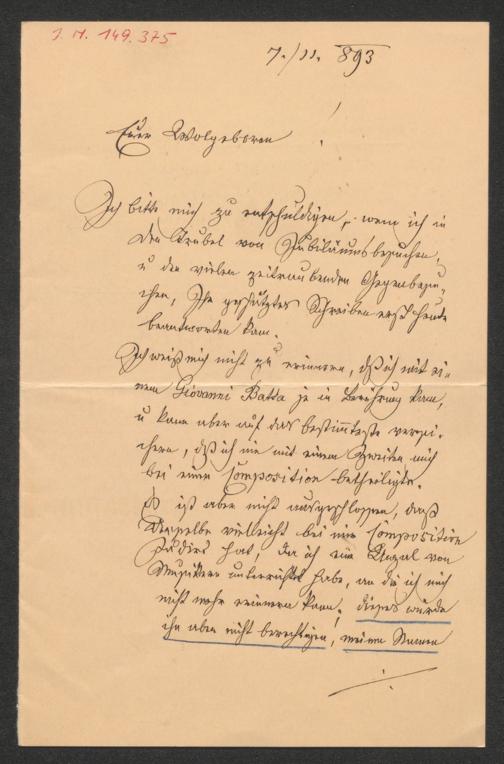 J. N. 149.375
7./11. 893
Euer Wolgeboren !
Ich bitte mich zu entschuldigen, wenn ich in
dem Trubel von Jubiläumsbesuchen,
u den vielen zeitraubenden Gegenbesu-
chen, Ihr geschätztes Schreiben erst heute
beantworten kann.
Ich weiß mich nicht zu erinnern, dß ich mit ei-
nem Giovanni Batta je in Berührung kam,
u kann aber auf das bestimmteste versi-
chern, dß ich nie mit einem Zweiten mich
bei einer Composition betheiligte.
Es ist aber nicht ausgeschlossen, daß
derselbe vielleicht bei mir Composition
studiert hat, da ich eine Anzal von
Musikern unterrichtet habe, an die ich mich
nicht mehr erinnern kann; dieses würde
ihn aber nicht berechtigen, meinen Namen